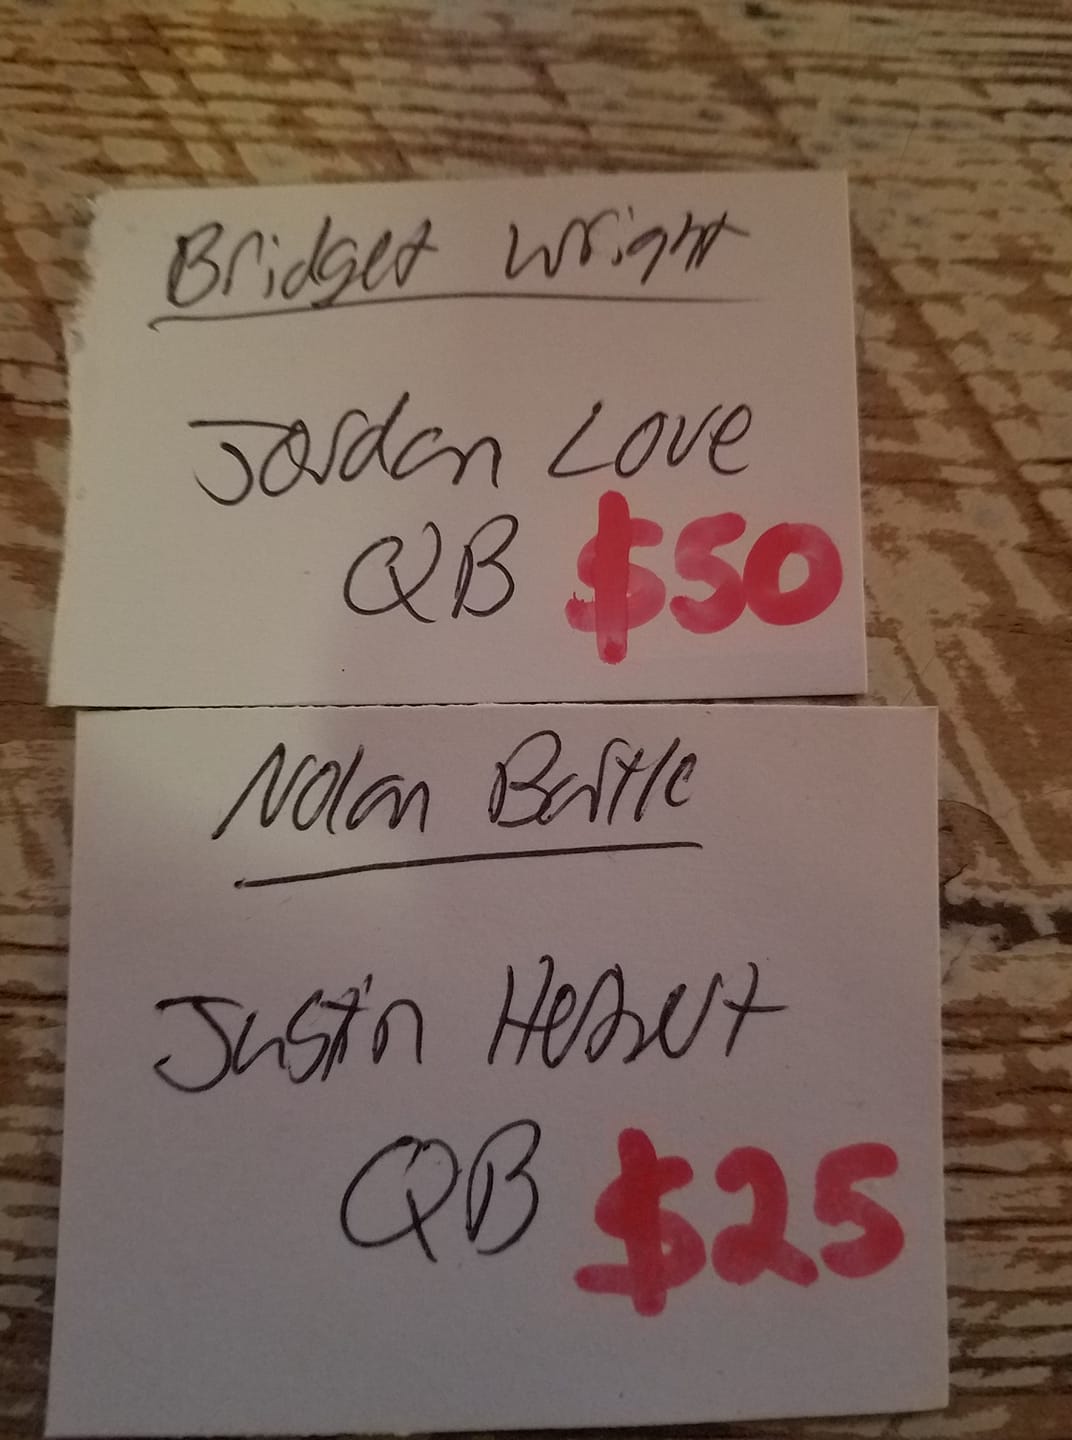 Bridget Wright
Jordan Love
QB $50
Nolan Bartle
Justin Herbert
QB $25